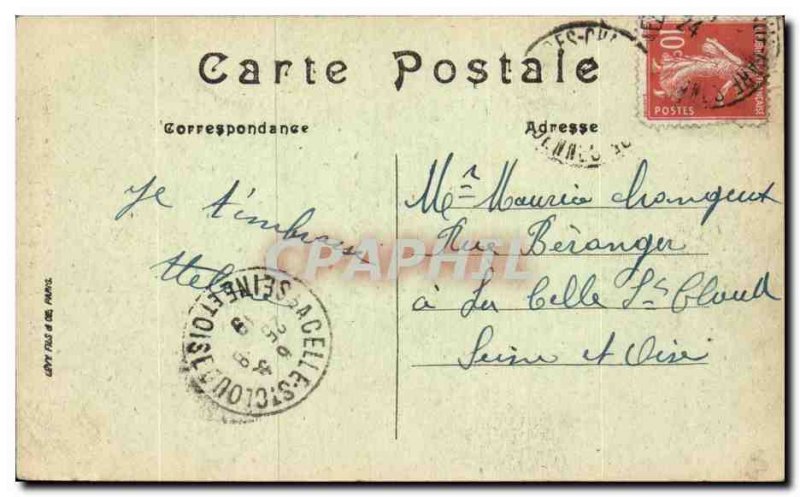 Carte Postale
Correspondance
Adresse
Je t'embrasse
Mr Maurice Changeux
Rue Béranger
à La Celle St Cloud
Seine et Oise
CPAPHIL
LACELLE-ST-CLOUD
SEINE-ET-OISE
10c
POSTES
LÉVY FILS & CIE, PARIS.